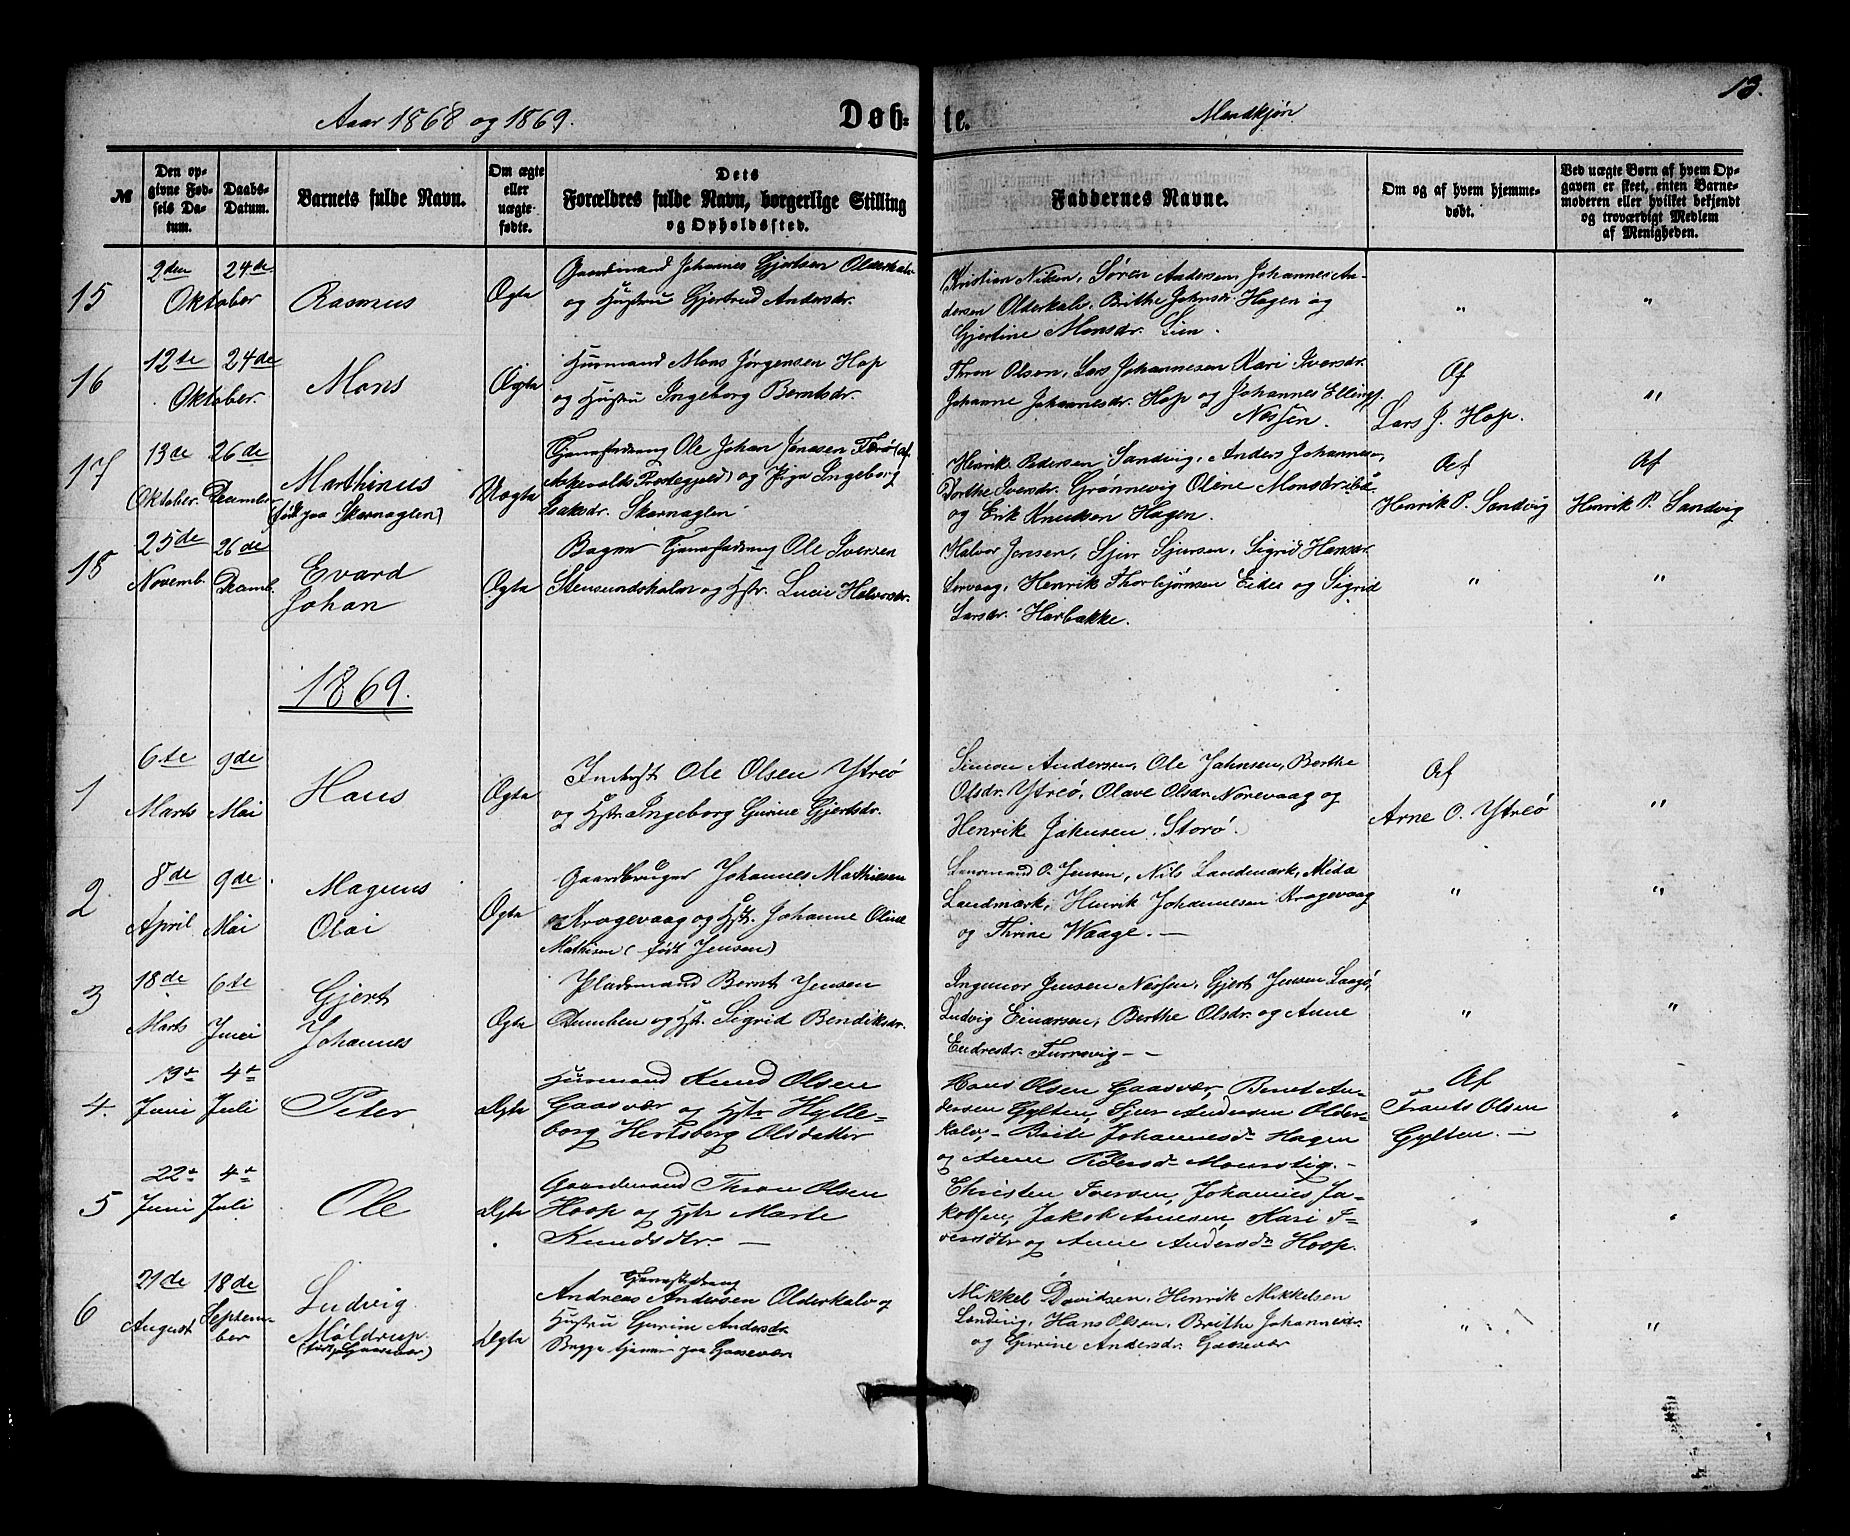 13.
Aar 1868 og 1869.
Døb-te.
Mandkjøn
№
Den opgivne Fødsels Datum.
Daabs-Datum.
Barnets fulde Navn.
Om ægte eller uægte fødte.
Dets Forældres fulde Navn, borgerlige Stilling og Opholdssted.
Faddernes Navne.
Om og af hvem hjemmedøbt.
Ved uægte Børn af hvem Opgaven er skeet, enten Barnemoderen eller hvilket bekjendt og troværdigt Medlem af Menigheden.
15
2den 24de
Oktober
Rasmus
Ægte
Gaardmand Johannes Gjertsen Olderkalv
og Hustru Gjertrud Andersdr.
Kristian Nilsen, Søren Andersen, Johannes An-
dersen Olderkalv, Brithe Johnsdr. Hagen og
Gjertine Monsdr. Lien.
"
"
16
12te 24de
Oktober
Mons
Ægte
Husmand Mons Jørgensen Hop
og Hustru Ingeborg Berntsdr.
Thron Olsen, Lars Johannesen Kari Iversdr.
Johanne Johannesdr. Hop og Johannes Ellings.
Nessen.
Af
Lars J. Hop.
"
17
13de 26de
Oktober. December
Marthinus
(født paa Skarnaglen)
Uægte
Ole Johan Jonassen Færø (af
Askevolds Præstegjeld) og Pige Ingeborg
Isaksdr. Skarnaglen
Henrik Pedersen Sandvig, Anders Johannes-
Dorthe Iversdr. Grønnevig Oline Monsdr.
og Erik Knudsen Hagen.
Af
Henrik P. Sandvig
Af
Henrik P. Sandvig
18
25de 26de
Novemb. Decemb.
Evard
Johan
Ægte
Ole Iversen
Stensundskalv og Hstr. Lucie Halvorsdr.
Halvor Jensen, Sjur Sjursen, Sigrid Hansdr.
Henrik Thorbjørnsen Eides og Sigrid
Larsdr. Harbakke.
"
"
1869.
1
6te 9de
Marts Mai
Hans
Ægte
Inderst Ole Olsen Ytreø
og Hstr. Ingeborg Gurine Gjertsdr.
Simon Andersen, Ole Johnsen, Berthe
Olsdr. Ytreø, Olave Olsdr. Norevaag og
Henrik Jakusen Storø.
Af
Arne O. Ytreø
"
2
8de 9de
April Mai
Magnus
Olai
Ægte
Gaardbruger Johannes Mathiesen
Krogevaag og Hstr. Johanne Oline
Mathisen (født Jensen)
Lensmand O. Jensen, Nils Landmark, Mida
Landmark, Henrik Johannesen Krogevaag
og Thrine Waage. —
"
"
3
18de 6te
Marts Juni
Gjert
Johannes
Ægte
Pladsmand Bernt Jensen
og Hstr. Sigrid Bendiksdr.
Ingemor Jensen Nessen, Gjert Jensen
Ludvig Einarsen, Berthe Olsdr. og Anne
Endresdr. Furrevig —
"
"
4
19de 4de
Juni Juli
Peter
Ægte
Husmand Knud Olsen
Gaasvær og Hstr. Hylle-
borg Hertsberg Olsdatter
Hans Olsen Gaasvær, Bernt An-
dersen Gylten, Sjur Andersen Older-
kalv, — Brite Johannesdr Hagen
og Anne Pedersdr
Af
Frants Olsen
Gylten. —
"
5
22de 4de
Juni Juli
Ole
Ægte
Gaardmand Thron Olsen
Hoop og Hstr Marte
Knudsdtr. —
Christen Iversen, Johannes Ja-
kobsen, Jakob Arnesen, Kari I-
versdtr og Anne Andersdr Hoop.
"
"
6
21de 18de
August September
Ludvig
Møldrup
(født paa Gaasevær)
Ægte
Andreas Andersen Olderkalv og
Hustru Gurine Andersdr.
Begge tjener paa Gaasevær
Mikkel Davidsen, Henrik Mikkelsen
Sandvig, Hans Olsen, Brithe Johannesdr.
og Gurine Andersdr. Gaasevær
"
"